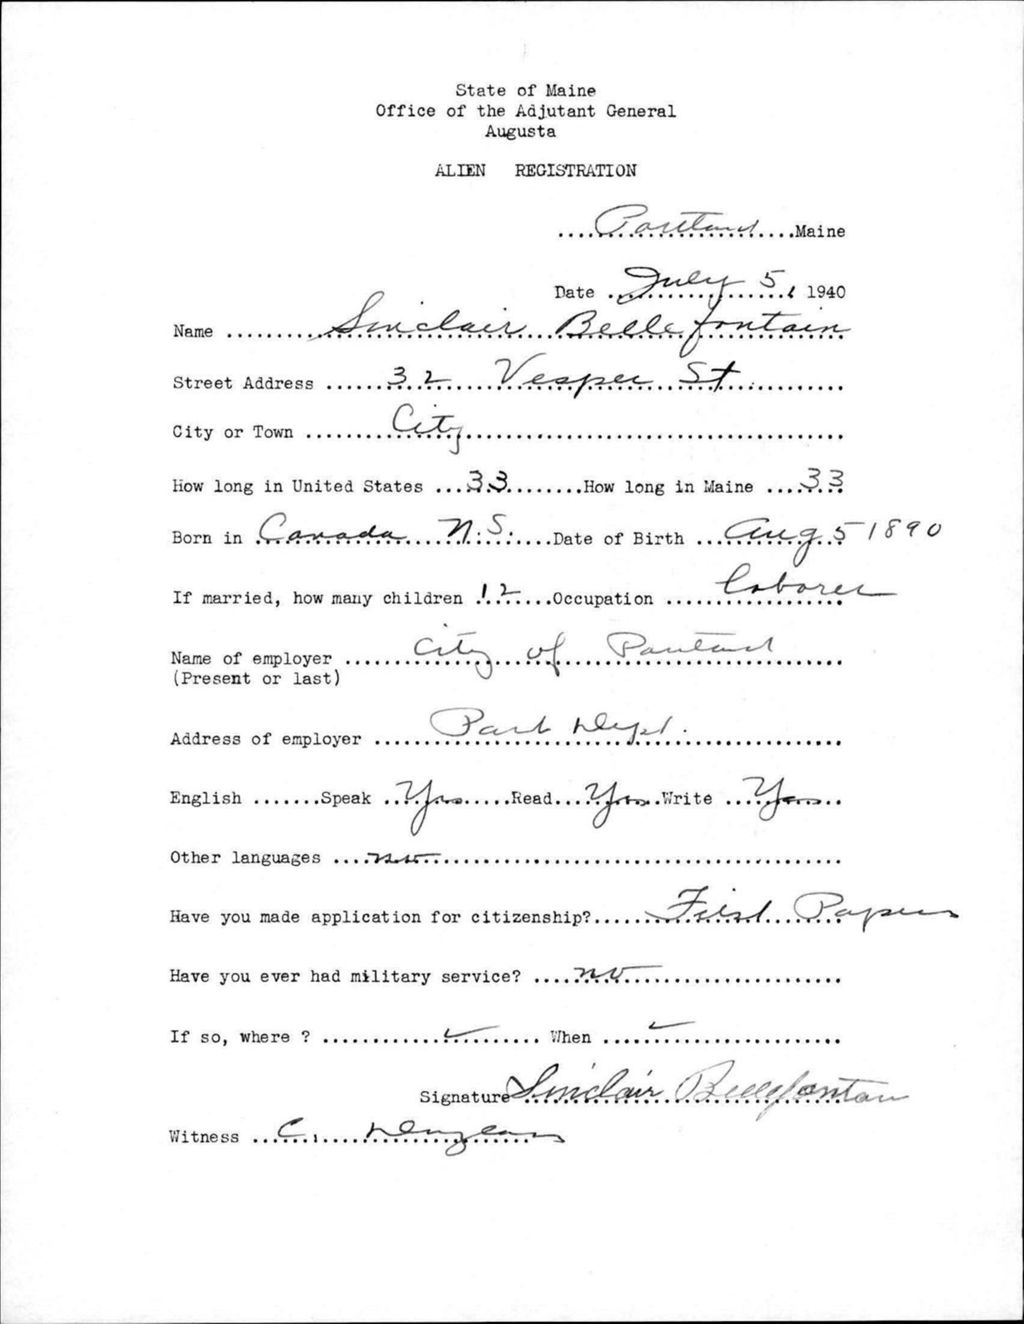 State of Maine
Office of the Adjutant General
Augusta
ALIEN REGISTRATION
....Portland....Maine
Date ...July 5..., 1940
Name .........Sinclair Bellefontain
Street Address ......32 Vesper St.........
City or Town ........City........
How long in United States ...33........How long in Maine ....33
Born in Canada....N.S.....Date of Birth ...Aug 5 1890
If married, how many children .12....Occupation ......Laborer
Name of employer .......City of Portland.......
(Present or last)
Address of employer ......Park Dept.......
English .......Speak ..Yes.....Read...Yes..Write ...Yes..
Other languages ....no........
Have you made application for citizenship?......First Papers
Have you ever had military service? ....no........
If so, where ? ............✓........ When ....✓........
Signature Sinclair Bellefontain
Witness ...C.